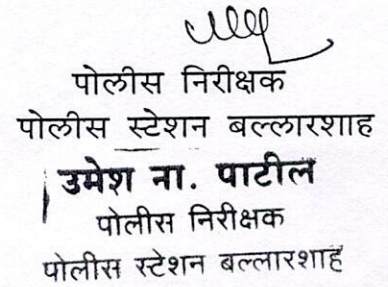 पोलीस निरीक्षक
पोलीस स्टेशन बल्लारशाह
उमेश ना. पाटील
पोलीस निरीक्षक
पोलीस स्टेशन बल्लारशाह